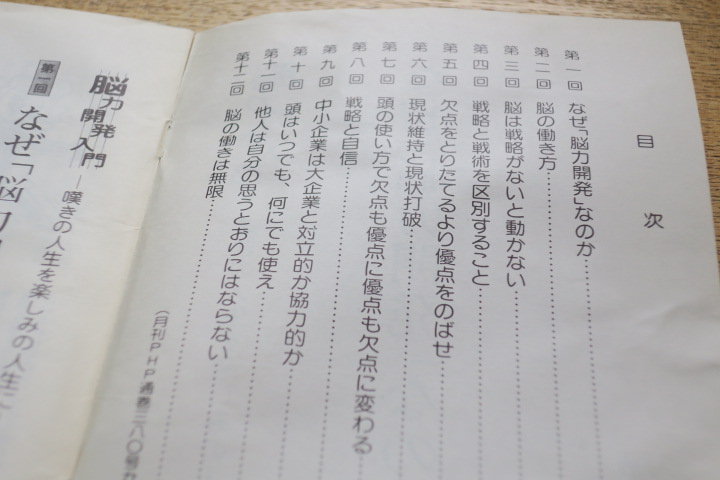 目次
第一回 なぜ「脳力開発」なのか
第二回 脳の働き方
第三回 脳は戦略がないと動かない
第四回 戦略と戦術を区別すること
第五回 欠点をとりたてるより優点をのばせ
第六回 現状維持と現状打破
第七回 頭の使い方で欠点も優点に優点も欠点に変わる
第八回 戦略と自信
第九回 中小企業は大企業と対立的か協力的か
第十回 頭はいつでも、何にでも使え
第十一回 他人は自分の思うとおりにはならない
第十二回 脳の働きは無限
(月刊PHP通巻三八〇号か
脳力開発入門
―嘆きの人生を楽しみの人生に
第一回
なぜ「脳力